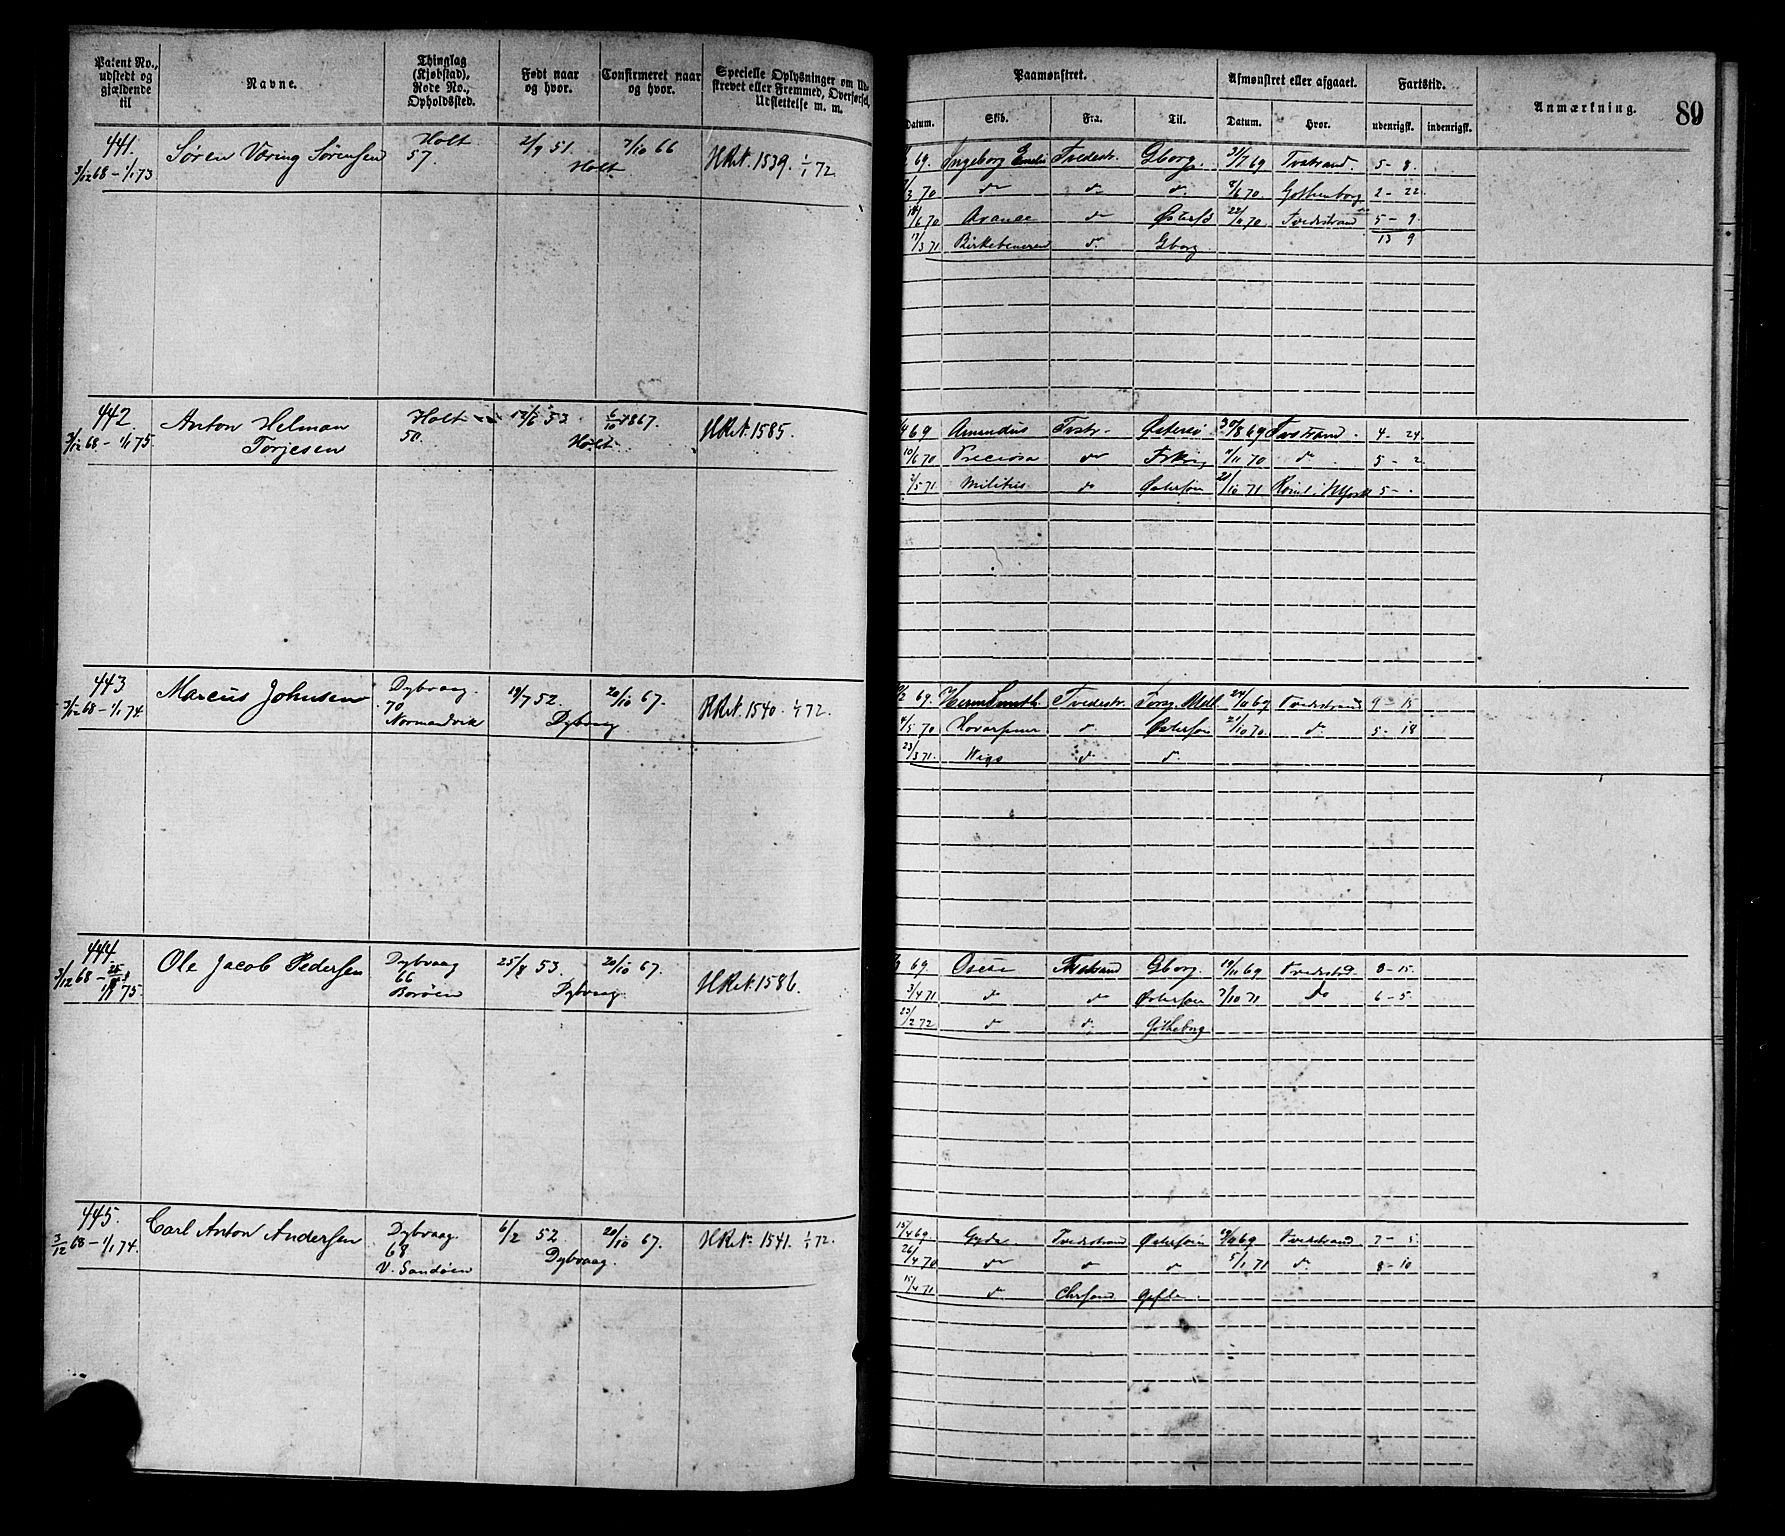 Patent No., udstedt og gjældende til
Navne.
Thinglag (Kjøbstad), Rode No., Opholdssted.
Født naar og hvor.
Confirmeret naar og hvor.
Specielle Oplysninger om Udskrevet eller Fremmed, Overførsel, Udslettelse m. m.
Paamønstret.
Afmønstret eller afgaaet.
Fartstid.
Anmærkning.
89
Datum. Skib. Fra. Til. Datum. Hvor. udenrigsk. indenrigsk.
441. Søren Væring Sørensen Holt 2/9 51. 7/10 66
3/12 68 – 1/1 73 57. Holt H.R.N. 1539. 1/1 72.
69. Ingeborg Tvedestr. Gborg. 31/7 69 Tvstrand. 5 - 8.
3 70 do do d. 8/6 70. Gothenborg 2 - 22.
6 70 do Østersø 22/9 70 Tvedestrand 5 - 9.
17/3 71 Birkebeneren d. Gborg 13 9
442. Anton Helman Holt 53 6/10 1867.
3/12 68 – 1/1 75. Torjesen 50. Holt H.R.N. 1585.
4 69 Amandus Tvstr. Østersø 30/8 69 Tvstrand. 4 - 24.
10/6 70 Preciosa do 11/11 70 d. 5 - 2
2/5 71 Militus do Østersøen 28/10 71 5 -
443 Marcus Johnsen Dybvaag. 19/7 52. 20/10 67.
3/12 68 – 1/1 74. 70 Dybvaag H.R.N. 1540. 1/1 72.
Normandvik
69. Tvedestr. 24/11 69 Tvedestrand 9 - 15
4/5 70 d Østersøen 21/10 70. d. 5 - 18
23/3 71. d d.
444. Ole Jacob Pedersen Dybvaag 25/8 53. 20/10 67.
3/12 68 – 1/1 75. 66 Dybvaag H.R.N. 1586.
Borøen
69. Oscar Tvstrand Gborg. 19/11 69 Tvedestrd. 8 - 15.
3/4 71 d do Østersøen 7/10 71 Do 6 - 5.
23/2 72 d d. Götheborg
445. Carl Anton Andersen Dybvaag. 6/2 52. 20/10 67.
3/12 68 – 1/1 74. 68 Dybvaag. H.R.N. 1541. 1/1 72.
V. Sandøen
15/4 69 Gyda Tvedestrand Østersøen 69 Tvedestrand 7 - 5.
26/4 70 do d d 5/1 71 d. 8 - 10
15/4 71 d. Chrsand Gefle.